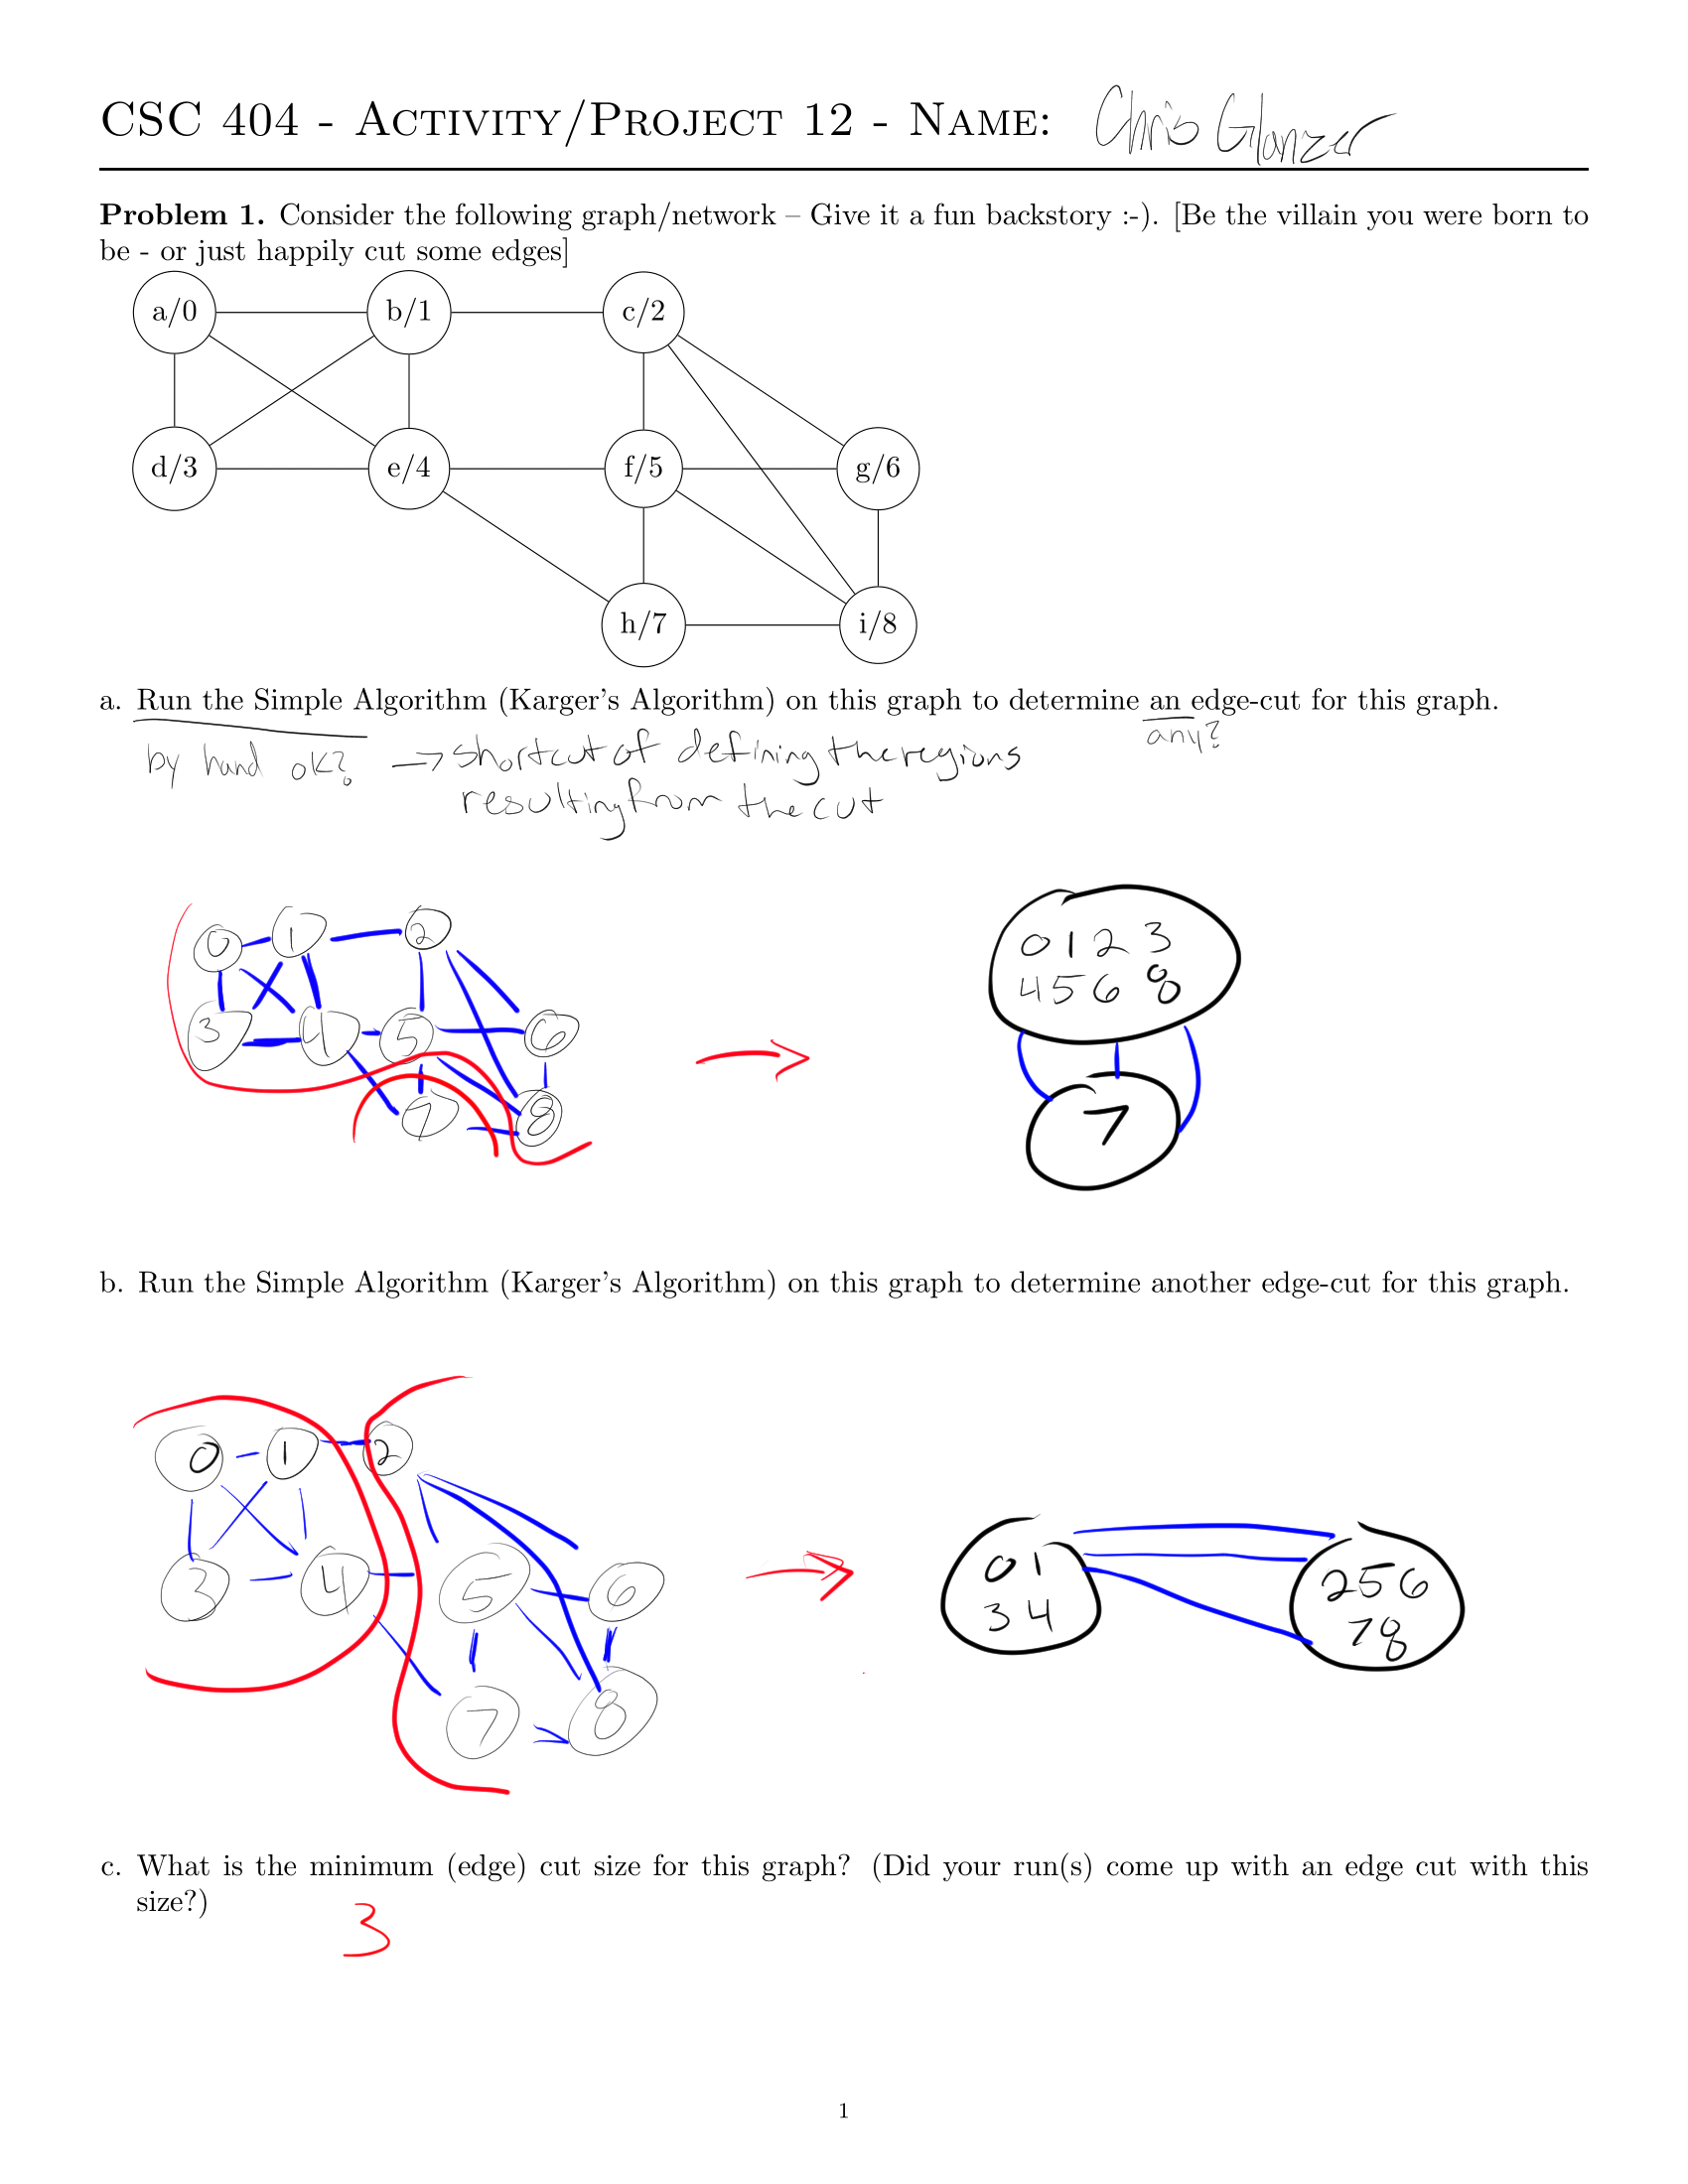 CSC 404 - Activity/Project 12 - Name: Chris Glanzer
Problem 1. Consider the following graph/network – Give it a fun backstory :-). [Be the villain you were born to
be - or just happily cut some edges]
a/0 b/1 c/2
d/3 e/4 f/5 g/6
h/7 i/8
a. Run the Simple Algorithm (Karger's Algorithm) on this graph to determine an edge-cut for this graph.
any?
by hand ok? → shortcut of defining the regions
resulting from the cut
0 1 2
3 4 5 6
7 8
0 1 2 3
4 5 6 8
7
b. Run the Simple Algorithm (Karger's Algorithm) on this graph to determine another edge-cut for this graph.
0 1 2
3 4 5 6
7 8
0 1
3 4
2 5 6
7 8
c. What is the minimum (edge) cut size for this graph? (Did your run(s) come up with an edge cut with this
size?)
3
1